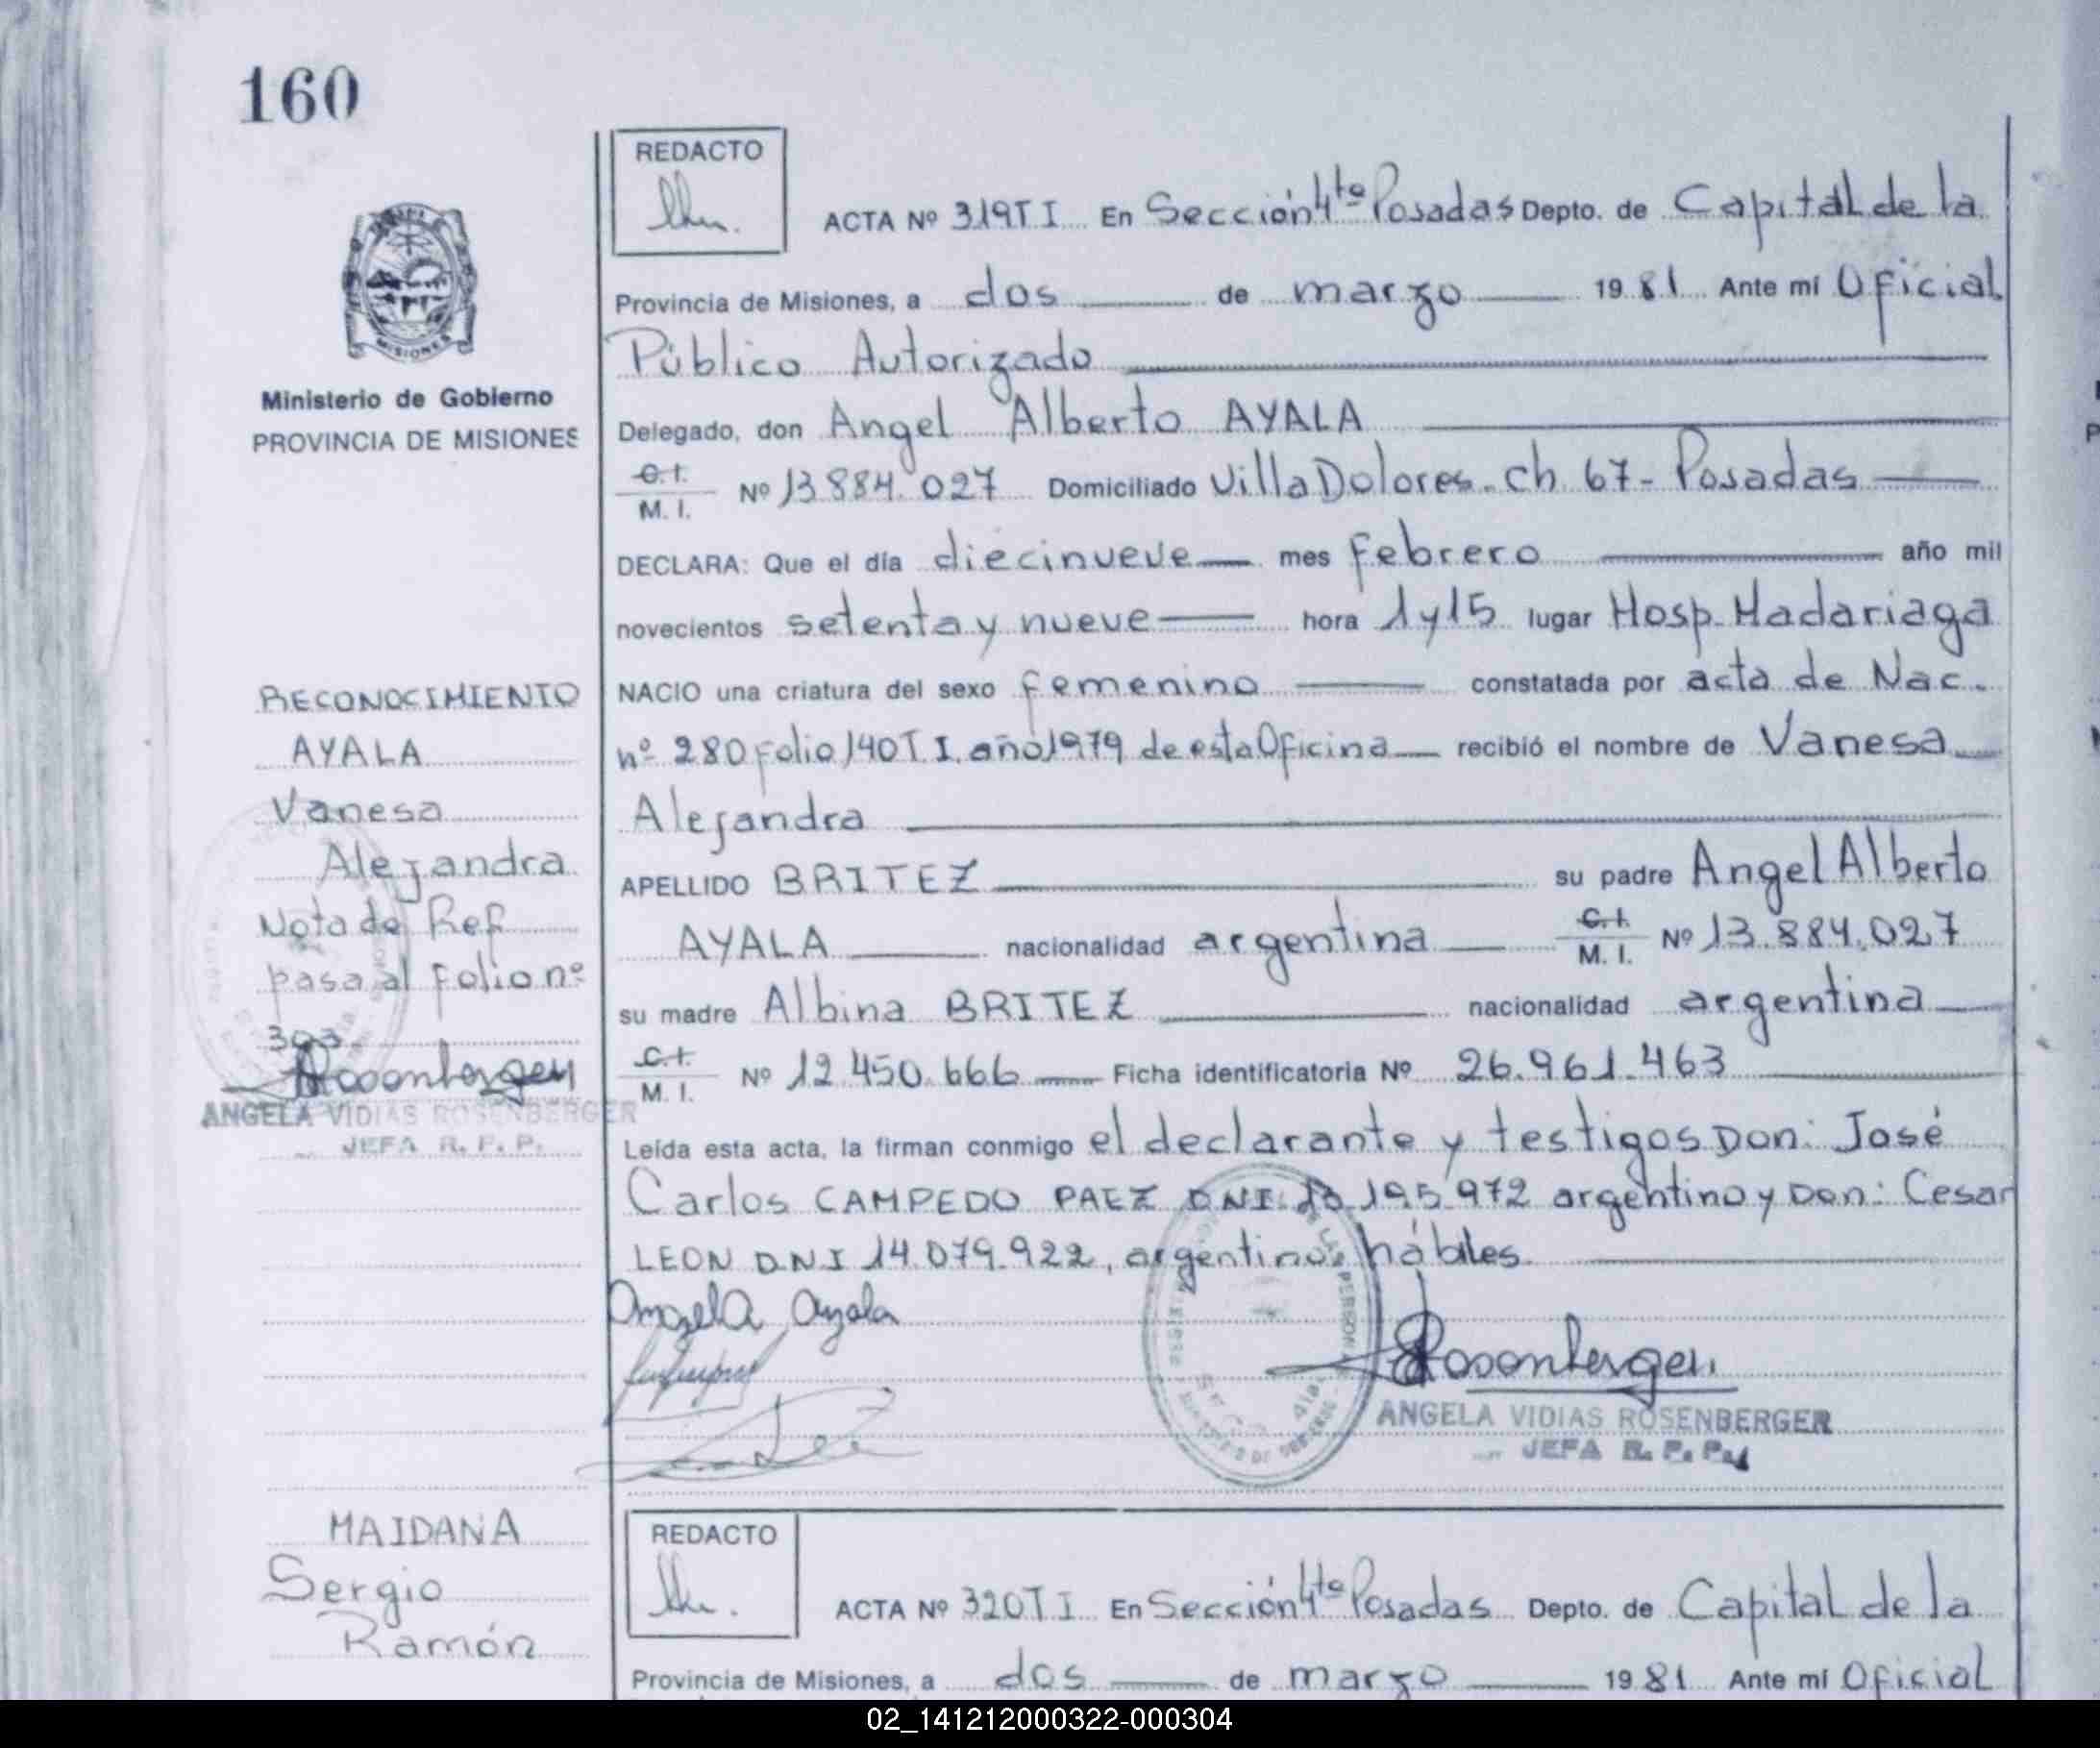 160
REDACTO
ACTA Nº 319 T I En Sección 4ta Posadas Depto. de Capital de la
Provincia de Misiones, a dos de marzo 1981 Ante mí Oficial
Público Autorizado
Delegado, don Angel Alberto AYALA
C.I.
M. I. Nº 13.884.027 Domiciliado Villa Dolores - Ch 67 - Posadas
DECLARA: Que el día diecinueve mes Febrero año mil
novecientos setenta y nueve hora 1 y 15 lugar Hosp. Madariaga
NACIO una criatura del sexo femenino constatada por acta de Nac.
nº 280 Folio 140 T. I. año 1979 de esta Oficina recibió el nombre de Vanesa
Alejandra
APELLIDO BRITEZ su padre Angel Alberto
AYALA nacionalidad argentina C.I.
M. I. Nº 13.884.027
su madre Albina BRITEZ nacionalidad argentina
C.I.
M. I. Nº 12.450.666 Ficha identificatoria Nº 26.961.463
Leída esta acta, la firman conmigo el declarante y testigos Don: José
Carlos CAMPEDO PAEZ DNI 195.972 argentino y Don: Cesar
LEON DNI 14.079.922, argentinos hábiles
Angel A Ayala
Rosenberger
ANGELA VIDIAS ROSENBERGER
JEFA R. P. P.
MISIONES
Ministerio de Gobierno
PROVINCIA DE MISIONES
RECONOCIMIENTO
AYALA
Vanesa
Alejandra
Nota de Ref
pasa al Folio nº
303
Rosenberger
ANGELA VIDIAS ROSENBERGER
JEFA R. P. P.
MAIDANA
Sergio
Ramón
REDACTO
ACTA Nº 320 T I En Sección 4ta Posadas Depto. de Capital de la
Provincia de Misiones, a dos de marzo 1981 Ante mí Oficial
02_141212000322-000304